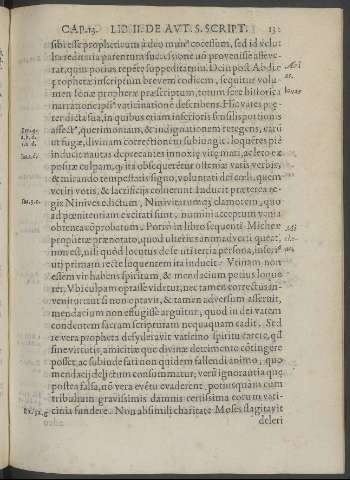 CAP. 13. LIB. II. DE AVT. S. SCRIPT. 13
sibi esse propheticum à deo mun9 cocessum, sed id velut
hæreditaria parentum successione nō provenisse asseve-
rat, quin potius repēte suppeditatum. Dein post Abdiæ
prophetæ inscriptum brevem codicem, sequitur volu-
men Ionæ prophetæ præscriptum, totum fere historica
narratione ipsi9 vaticinatione describens. Hic vates præ-
ter dicta sua, in quibus etiam inferioris sensilis portionis
affect9, querimoniam, & indignationem retegens, varii
ut fugæ, divinam correctionem subiungit: loquetes piè
inducit nautas deprecantes innoxię vitę mari, ac leto
positæ culpam,
& mirando tempestatis signo, voluntati dei cœli, quem
veriti votis, & sacrificijs coluerint. Inducit præterea re-
gis Ninives edictum, Ninivitarumq; clamorem, quo
ad pœnitentiam excitati sunt, numini acceptum venia
obtenta cōprobatum. Porrò in libro sequenti Micheæ
prophetæ prænotato, quod ulterius animadverti queat,
non est, nisi quòd locutus de se uti tertia persona, inse-
uti primam recte loquentem ita inducit. Vtinam non
essem vir habens spiritum, & mendacium potius loque
rer. Vbi culpam optasse videtur, nec tamen correctus in-
venitur: aut si non optavit, & tamen adversum asseruit,
mendacium non effugisse arguitur, quod in dei vatem
condentem sacram scripturam nequaquam cadit. Sed
re vera propheta desyderavit vaticino spiritu carere, qd
sine virtutis, amicitiæ que divinæ detrimento cōtingere
posset, ac subinde fati non quidem fallendi animo, quo
mendacij delictum consummatur, verū ignorantia quę
postea falsa, nō vera evētu evaderent, potius quàm cum
tribulium gravissimis damnis certissima eorum vati-
cinia fundere. Non absimili charitate Moses flagitavit
deleri
Abdi
as.
Ionas
Mi
Ionæ. 2.
Ion. 3. c.